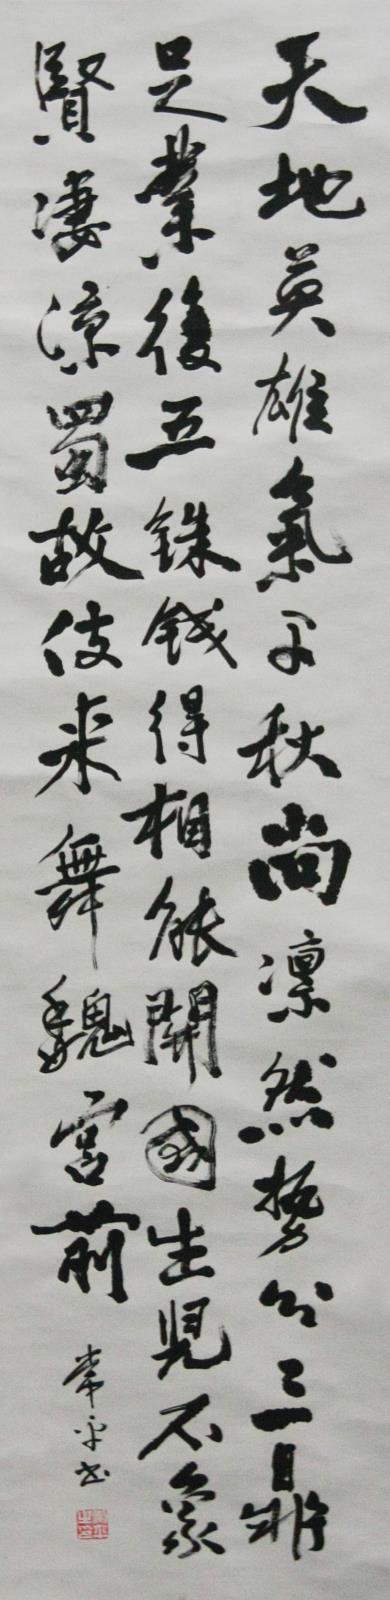 天地英雄氣千秋尚凛然勢分三鼎
足業復五銖錢得相能開國生兒不象
賢凄凉蜀故伎来舞魏宫前
常平书